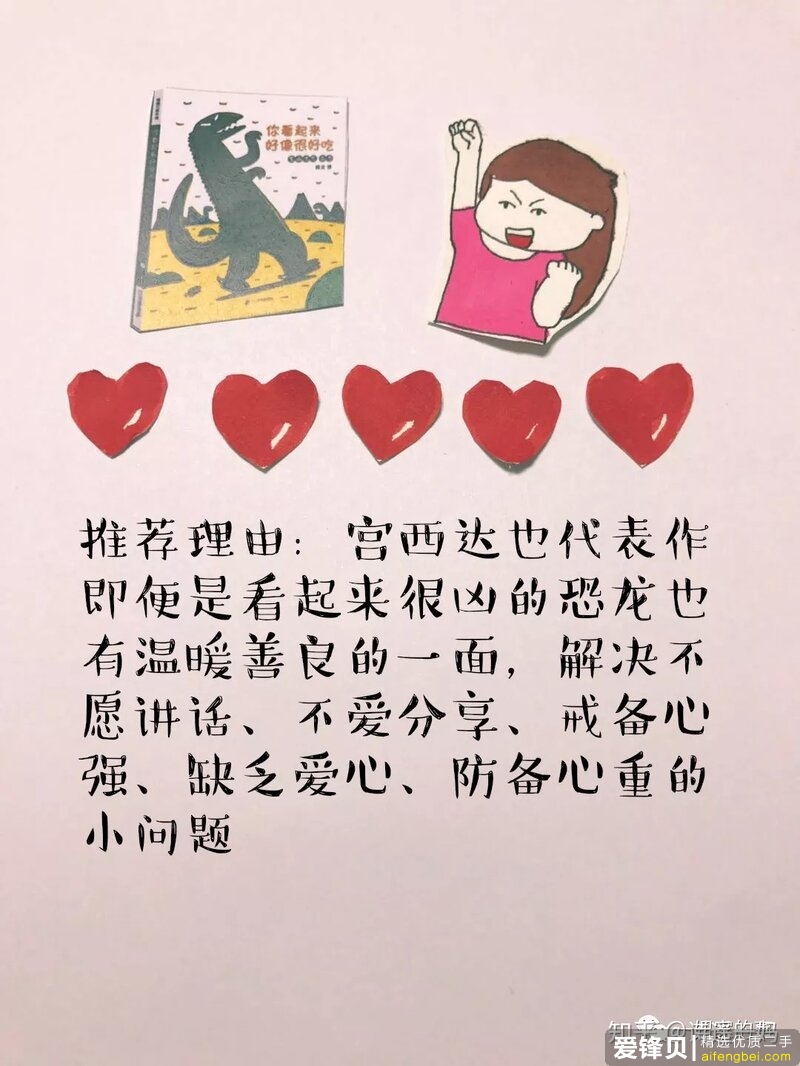 你看起来
好像很好吃
推荐理由：宫西达也代表作
即便是看起来很凶的恐龙也
有温暖善良的一面，解决不
愿讲话、不爱分享、戒备心
强、缺乏爱心、防备心重的
小问题
知乎
爱锋贝 精选优质二手
aifengbei.com